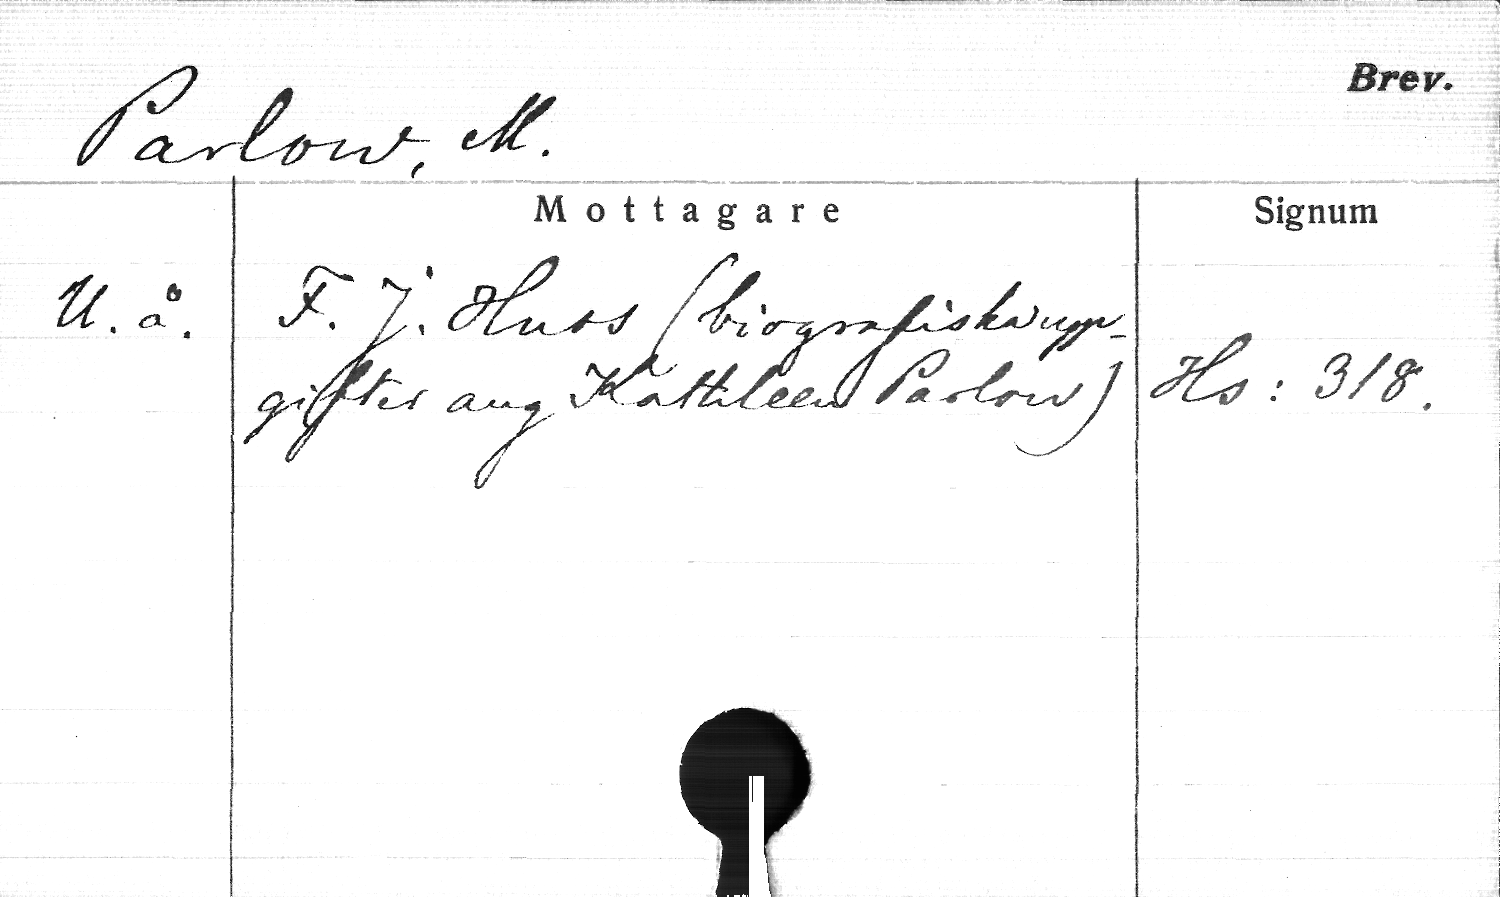 Brev.
Parlow, M.
Mottagare
Signum
U. å.
F. J. Huss (biografiska upp-
gifter ang Kathleen Parlow)
Hs: 318.